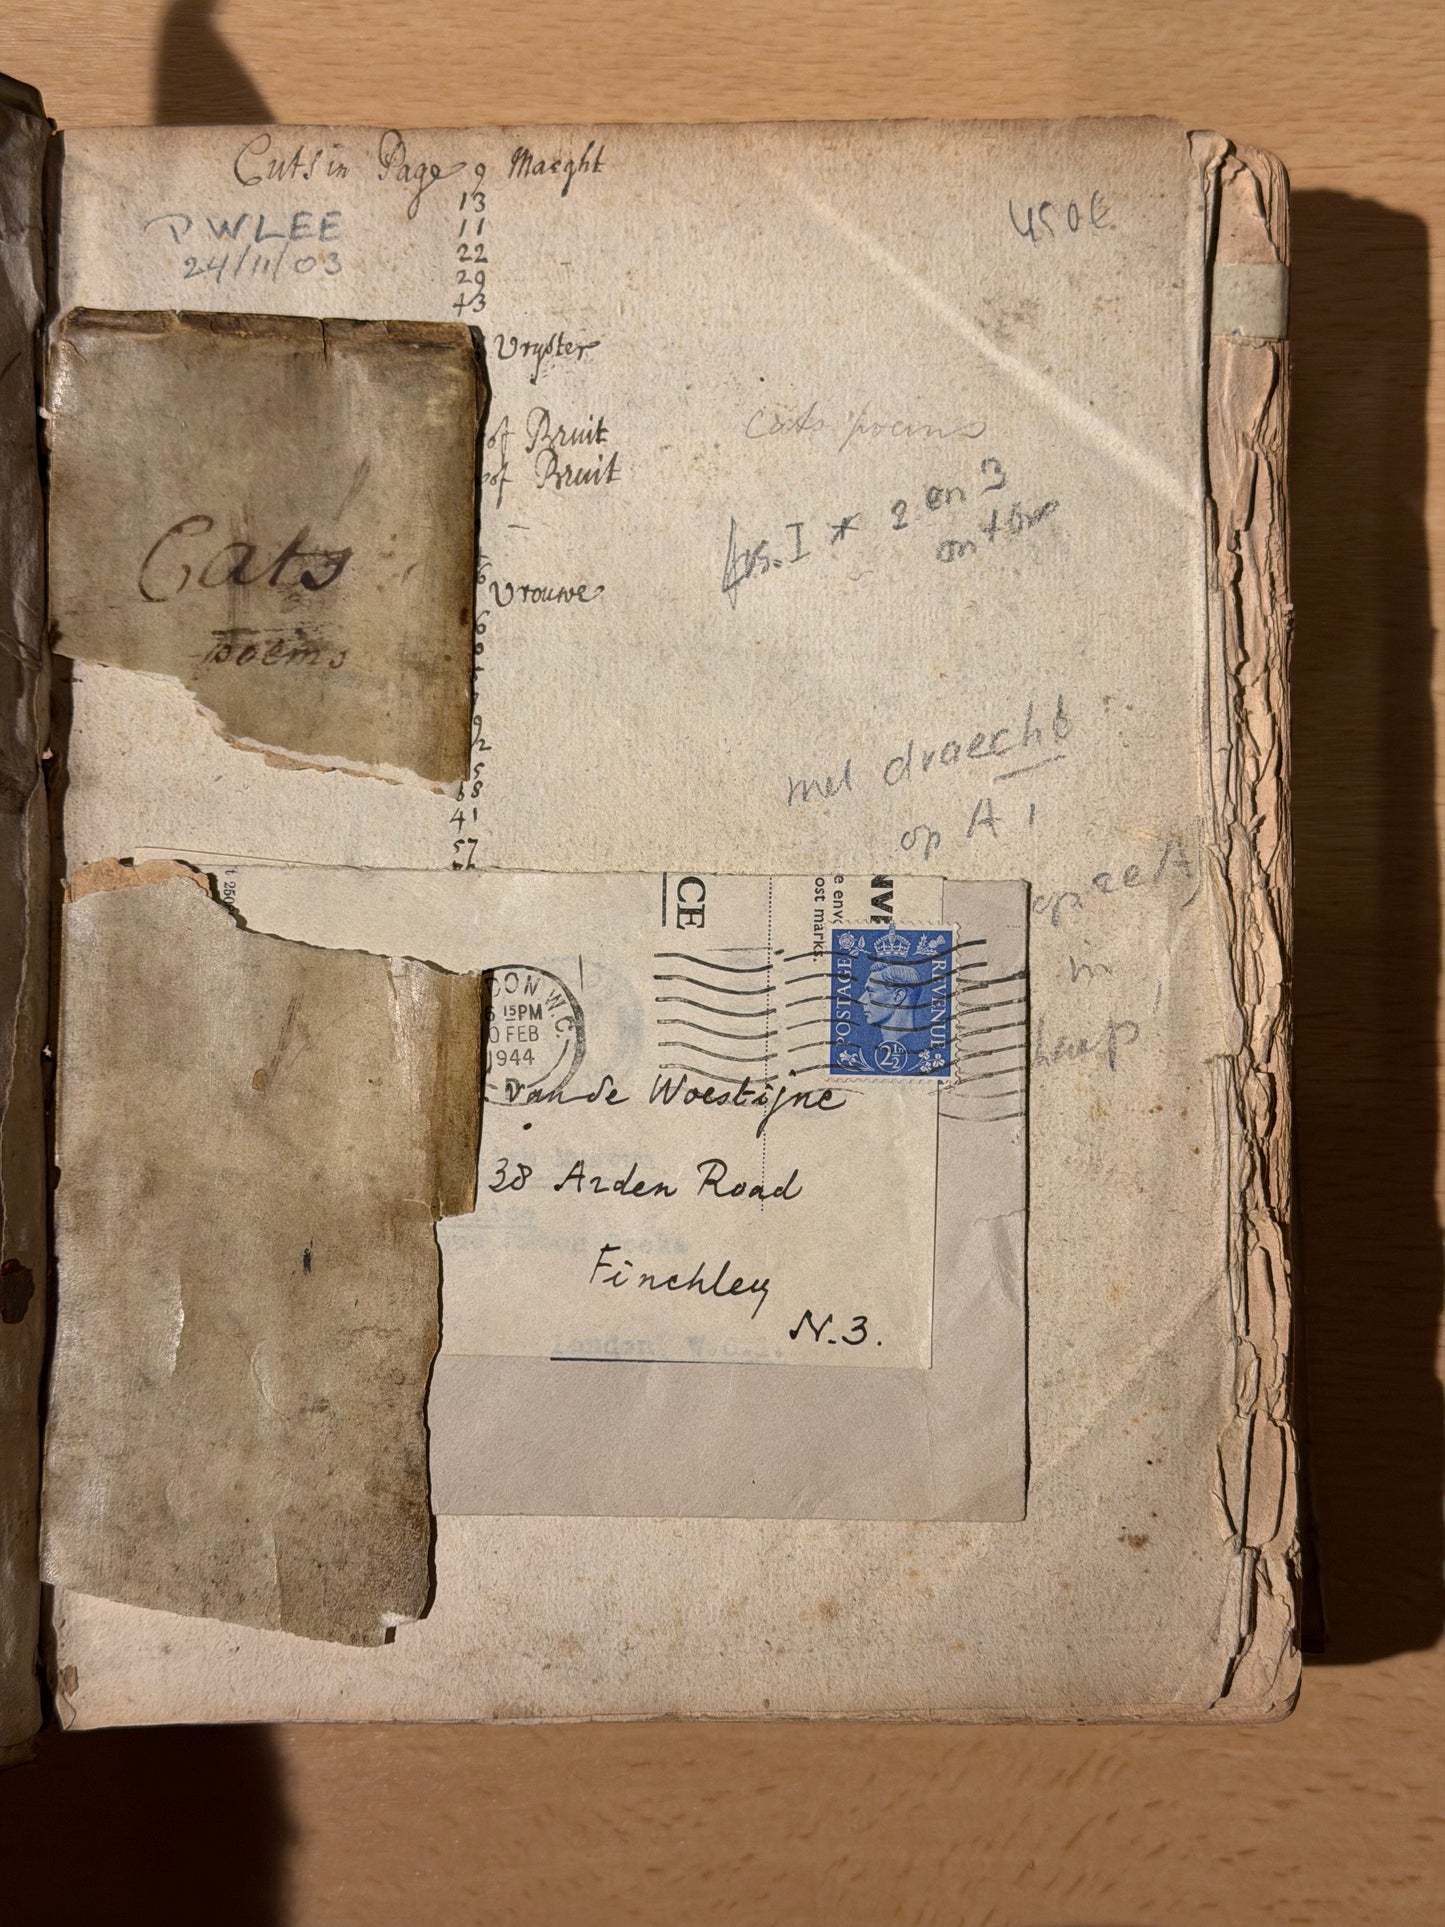 Cuts in Page 9 Maeght
13
11
22
29
43
P W LEE
24/11/03
450€
Vryster
of Bruit
of Bruit
Cats poems
2 en 3
Vrouwe
6
6
9
Cats
poems
met draecht
op A 1
41
57
CE
NVE
e env
ost marks.
t 250
DON W.C.
6 15PM
0 FEB
1944
POSTAGE REVENUE
2½
van de Woestijne
38 Arden Road
Finchley
N.3.
London W.C.1.